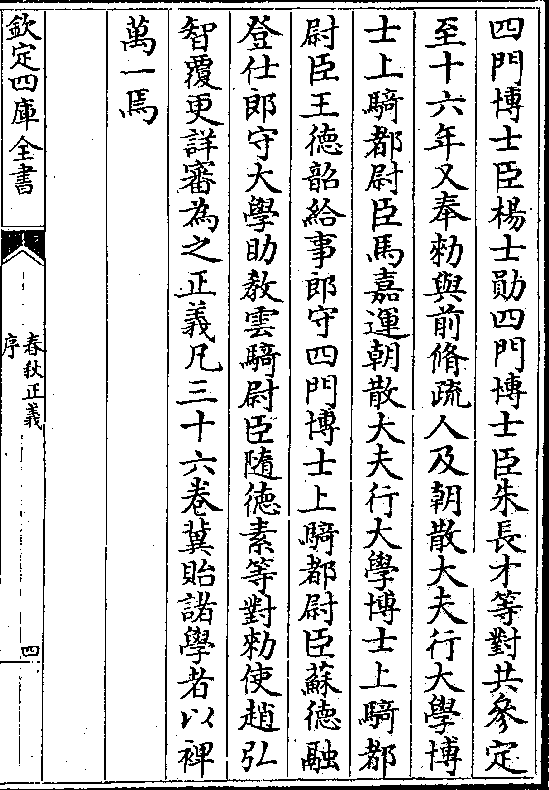 四門博士臣楊士勛四門博士臣朱長才等對共參定
至十六年又奉勑與前脩疏人及朝散大夫行大學博
士上騎都尉臣馬嘉運朝散大夫行大學博士上騎都
尉臣王德韶給事郎守四門博士上騎都尉臣蘇德融
登仕郎守大學助教雲騎尉臣隨德素等對勑使趙弘
智覆更詳審為之正義凡三十六卷冀貽諸學者以裨
萬一焉
欽定四庫全書
春秋正義
序
四